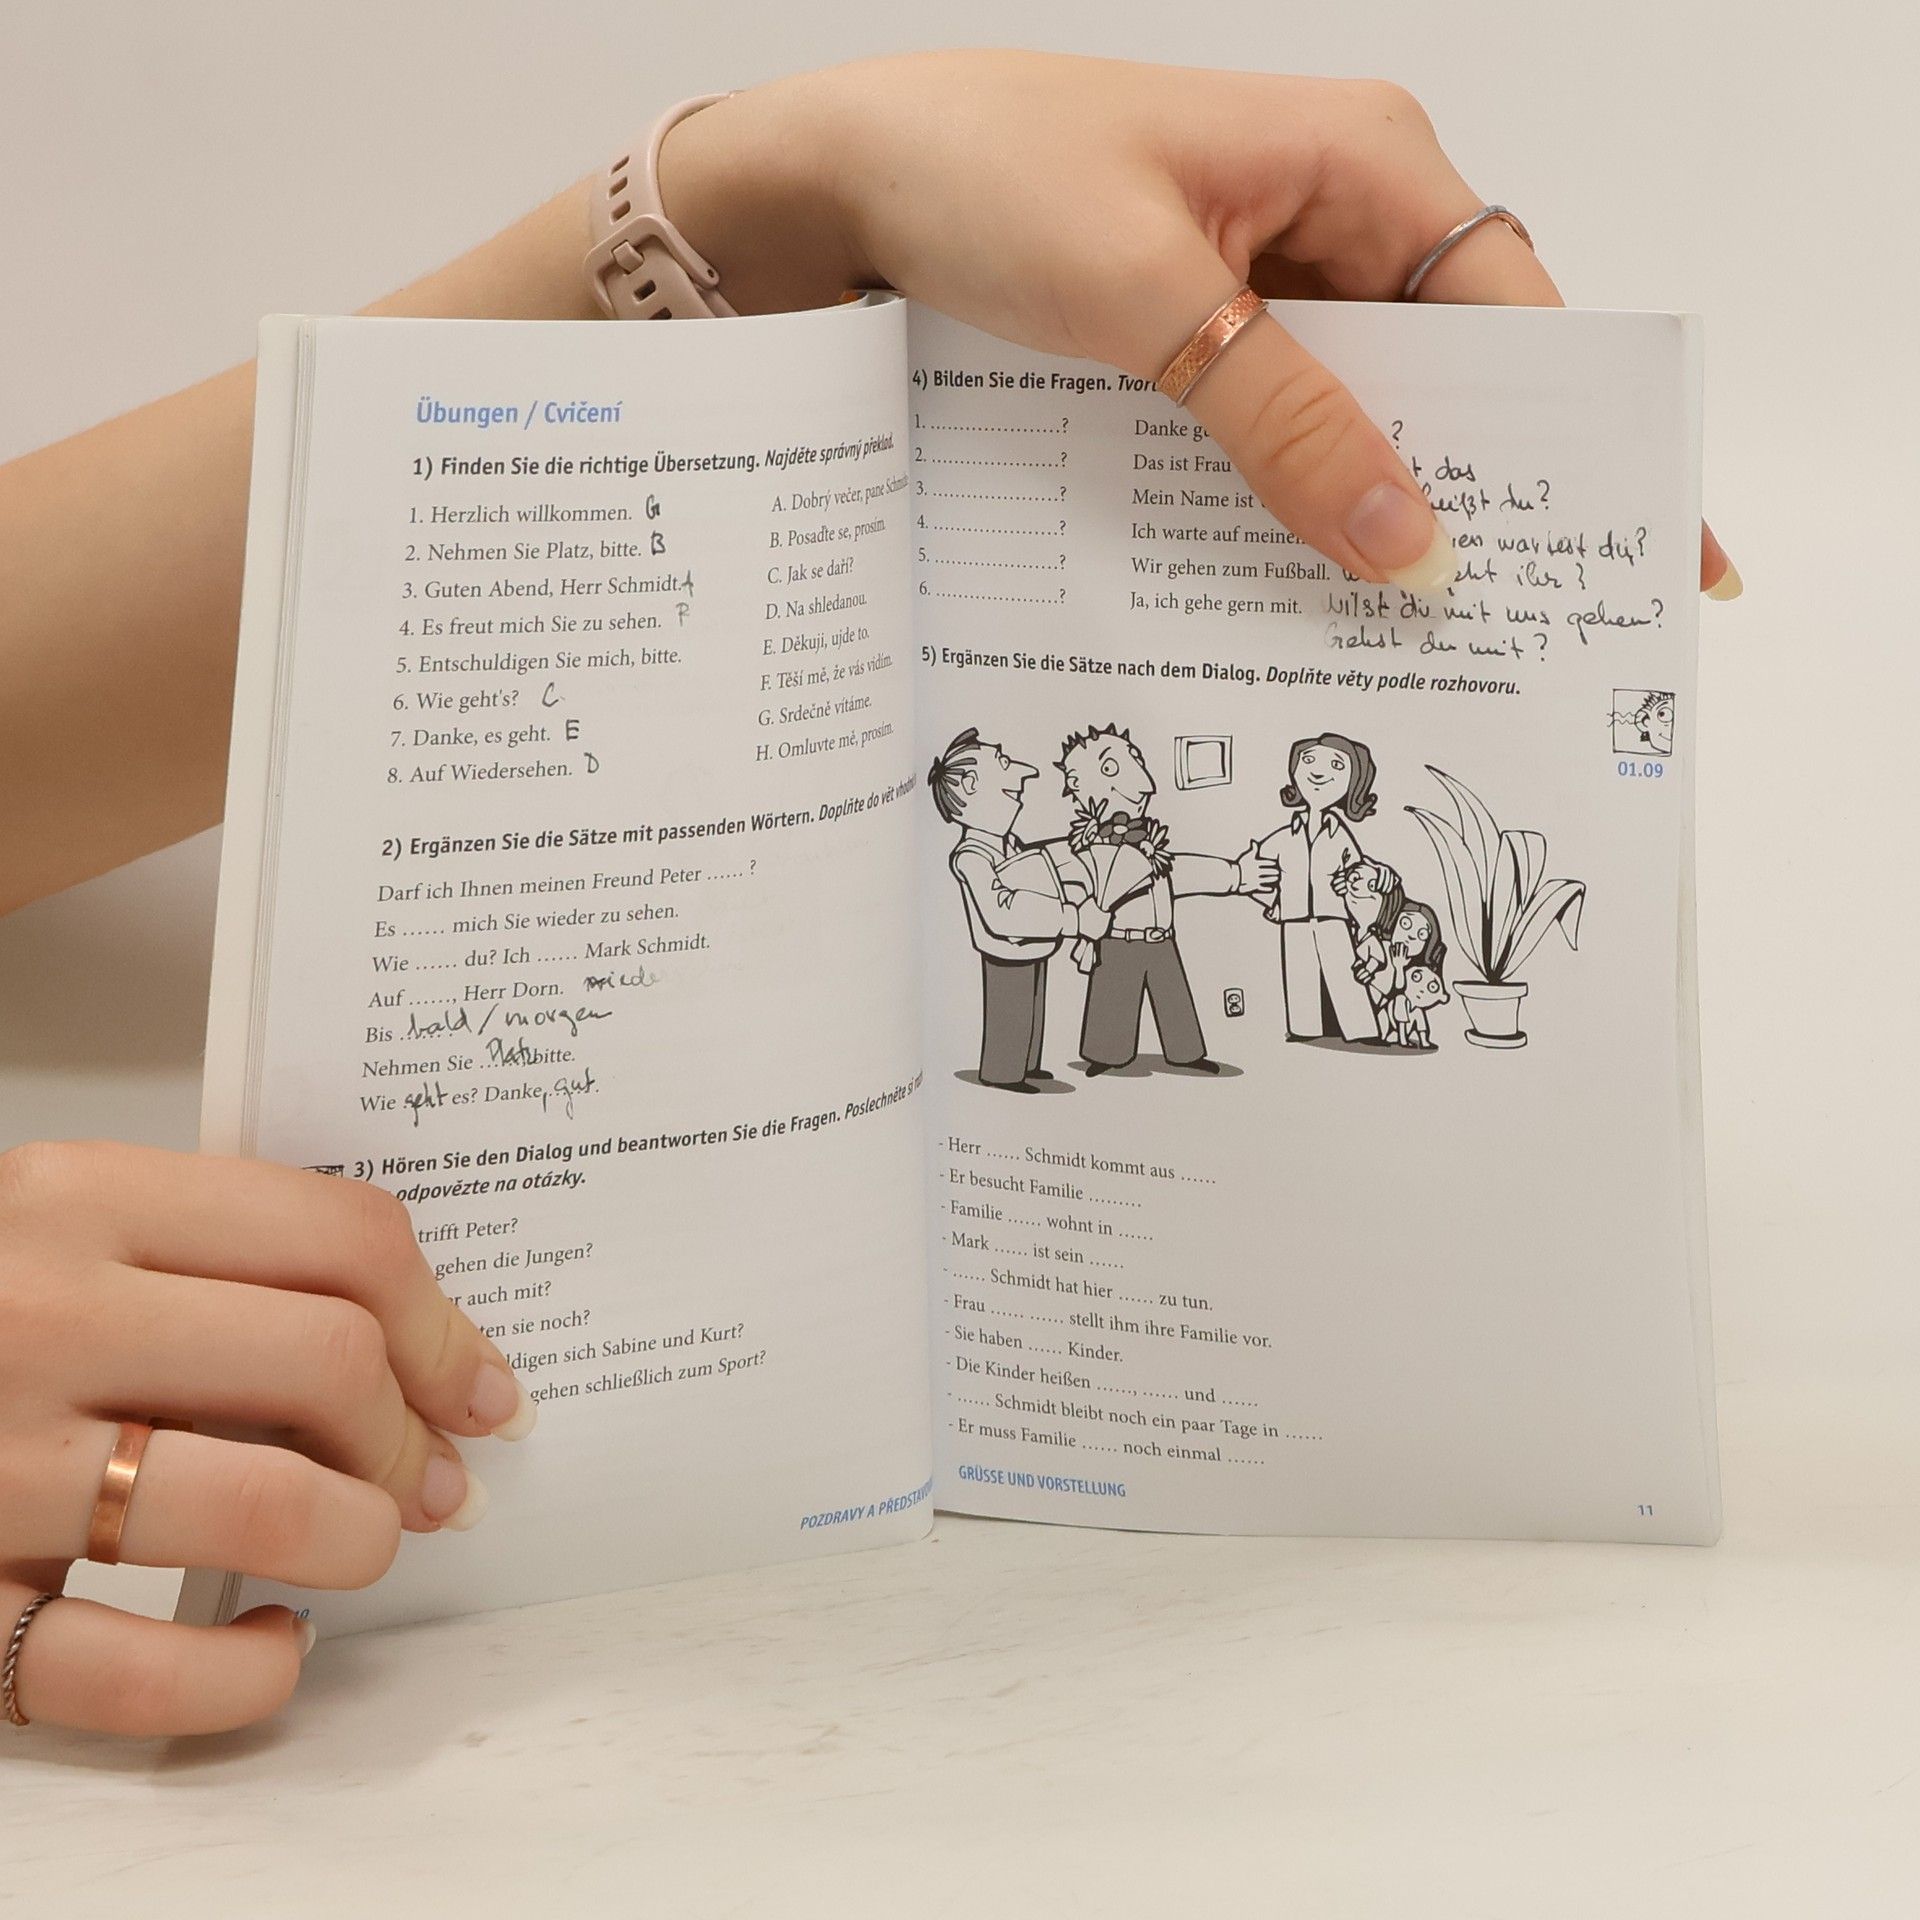 Übungen / Cvičení
1) Finden Sie die richtige Übersetzung. Najděte správný překlad.
1. Herzlich willkommen. G
2. Nehmen Sie Platz, bitte. B
3. Guten Abend, Herr Schmidt. A
4. Es freut mich Sie zu sehen. F
5. Entschuldigen Sie mich, bitte.
6. Wie geht's? C
7. Danke, es geht. E
8. Auf Wiedersehen. D
A. Dobrý večer, pane Schmidt
B. Posaďte se, prosím.
C. Jak se daří?
D. Na shledanou.
E. Děkuji, ujde to.
F. Těší mě, že vás vidím.
G. Srdečně vítáme.
H. Omluvte mě, prosím.
2) Ergänzen Sie die Sätze mit passenden Wörtern. Doplňte do vět
Darf ich Ihnen meinen Freund Peter ...... ?
Es ...... mich Sie wieder zu sehen.
Wie ...... du? Ich ...... Mark Schmidt.
Auf ......, Herr Dorn.
Bis bald / morgen
Nehmen Sie Platz bitte.
Wie geht es? Danke, gut.
3) Hören Sie den Dialog und beantworten Sie die Fragen. Poslechněte si
odpovězte na otázky.
trifft Peter?
gehen die Jungen?
auch mit?
sie noch?
sich Sabine und Kurt?
gehen schließlich zum Sport?
POZDRAVY A
10
4) Bilden Sie die Fragen.
1. .....................? Danke ?
2. .....................? Das ist Frau das
3. .....................? Mein Name ist heißt du?
4. .....................? Ich warte auf wartest du?
5. .....................? Wir gehen zum Fußball. ihr?
6. .....................? Ja, ich gehe gern mit. Wilst du mit uns gehen?
Gehst du mit?
5) Ergänzen Sie die Sätze nach dem Dialog. Doplňte věty podle rozhovoru.
01.09
- Herr ...... Schmidt kommt aus ......
- Er besucht Familie .........
- Familie ...... wohnt in ......
- Mark ...... ist sein ......
- ...... Schmidt hat hier ...... zu tun.
- Frau ...... ...... stellt ihm ihre Familie vor.
- Sie haben ...... Kinder.
- Die Kinder heißen ......, ...... und ......
- ...... Schmidt bleibt noch ein paar Tage in ......
- Er muss Familie ...... noch einmal ......
GRÜSSE UND VORSTELLUNG
11